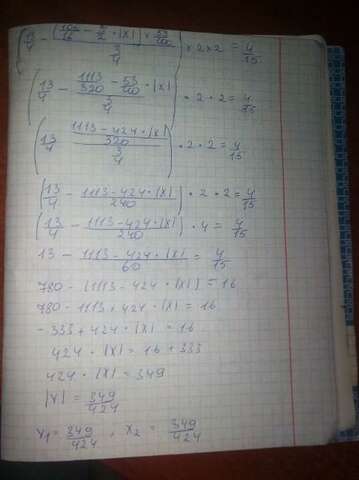 (13/4 - (1113/320 - 53/40 · |x|)/(3/4)) · 2 · 2 = 4/15
(13/4 - ((1113 - 424 · |x|)/320)/(3/4)) · 2 · 2 = 4/15
(13/4 - (1113 - 424 · |x|)/240) · 2 · 2 = 4/15
(13/4 - (1113 - 424 · |x|)/240) · 4 = 4/15
13 - (1113 - 424 · |x|)/60 = 4/15
780 - (1113 - 424 · |x|) = 16
780 - 1113 + 424 · |x| = 16
- 333 + 424 · |x| = 16
424 · |x| = 16 + 333
424 · |x| = 349
|x| = 349/424
x₁ = 349/424 , x₂ = 349/424